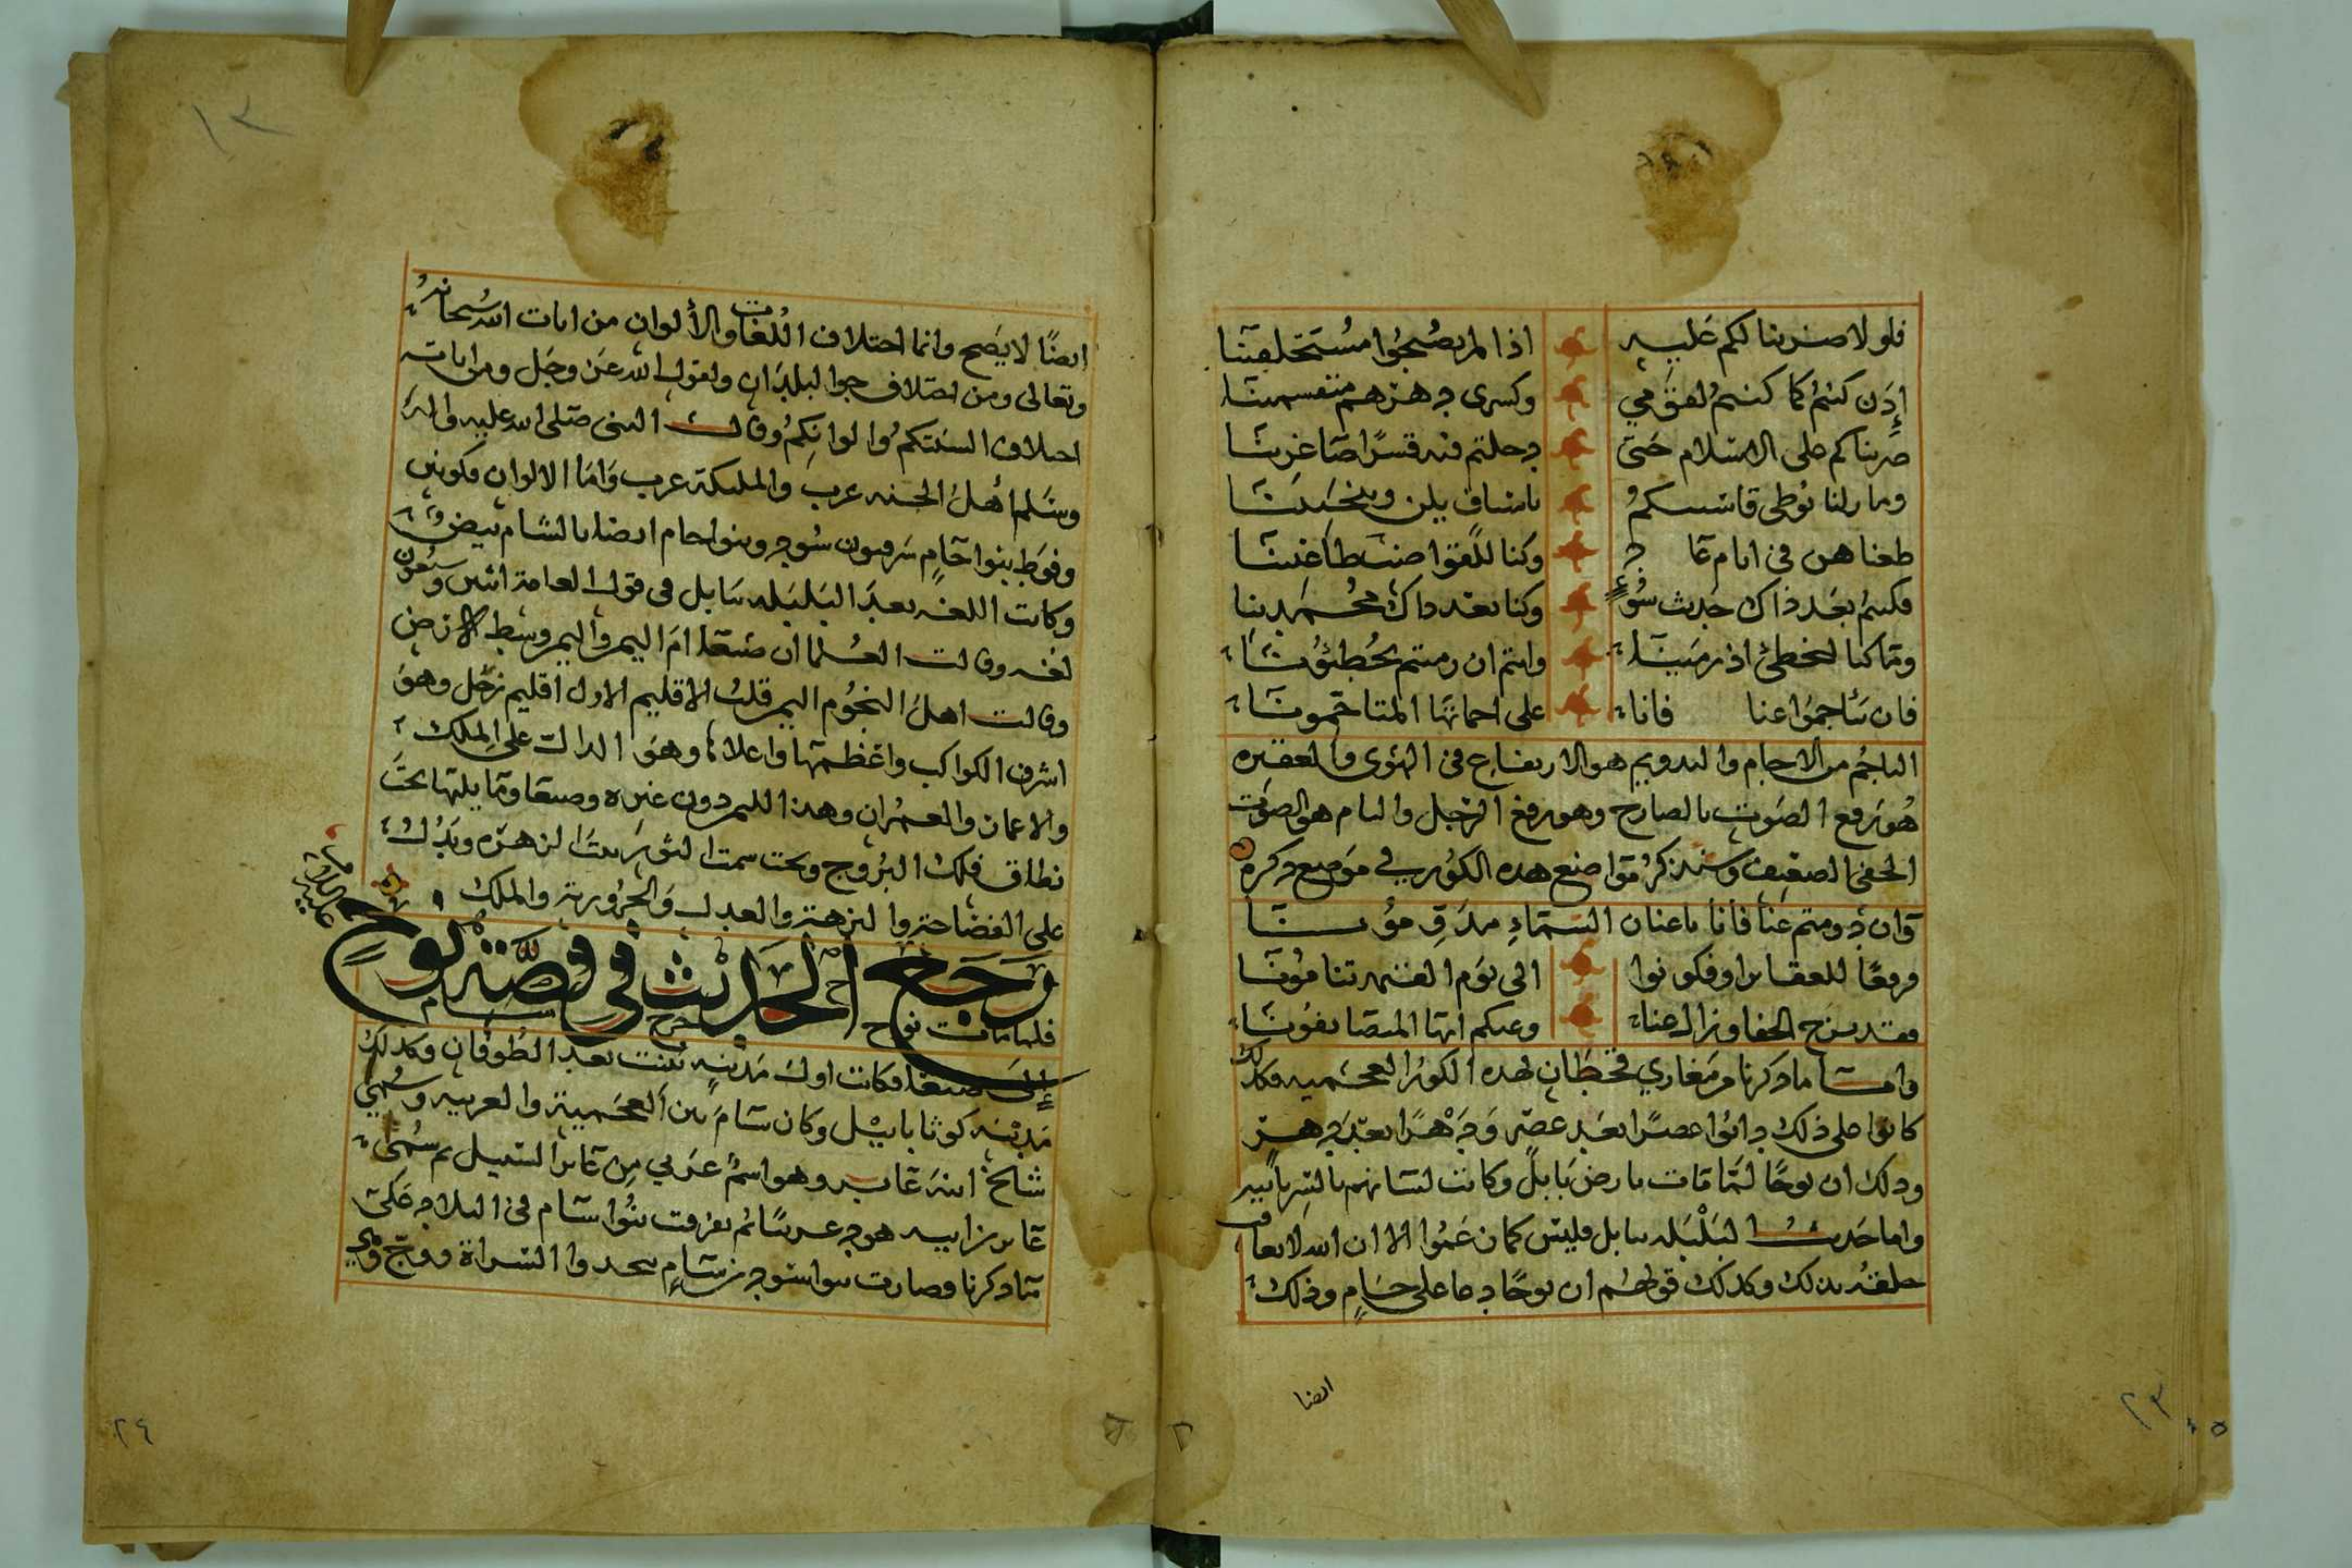 فلولا صربنا لكم عليه اذا لم تصبحوا مستخلفينا
إذن كنتم كما كنتم لفرمي وكسرى دهرهم متقسمينا
ضربناكم على الاسلام حتى دخلتم فيه قسرا صاغرينا
وما زلنا نوطى قاسيكم باسياف يلن وينحنينا
طعناهن في ايام عاد وكنا للقوا طاغينا
فكنتم بعد ذاك حديث سوء وكنا بعد ذاك محمدينا
وما كنا لنخطئ اذ رمينا وانتم ان رميتم تخطئونا
فان تناجموا عنا فانا على احمائها المتاخمونا
الناجم من الاجام والتدويم هو الارتفاع في الهوى والعقيره
هو رفع الصوت بالصارخ وهو رفع الرجل والنام هو الصوت
الخفي الضعيف وسنذكر مواضع هذه الكور في موضع ذكره
وان دومتم عنا فانا باعنان السماء
ورفعا للعقاير او فكونوا الى يوم القيمه تنامونا
فقد برح الخفا وزال عنا وعنكم ايها
واما ما ذكرنا من مغازي قحطان لهذه الكور العجميه فكذلك
كانوا على ذلك دانوا عصرا بعد عصر ودهرا بعد دهر
وذلك ان نوحا لما مات بارض بابل وكانت لسانهم بالسريانيه
واما حديث البلبله ببابل فليس كما زعموا الا ان الله لا يعاقب
خلقه بذلك وكذلك قولهم ان نوحا دعا على حام وذلك
ايضا
١٣
ايضا لا يصح وانما اختلاف اللغات والألوان من ايات الله سبحانه
وتعالى ومن اختلاف جوا البلدان ولقول الله عز وجل ومن اياته
اختلاف السنتكم والوانكم وقال النبي صلى الله عليه واله
وسلم أهل الجنه عرب والمليكة عرب واما الالوان فكونين
وفوط بنوا حام سرفيون سود وبنوا حام ايضا بالشام بيض
وكانت اللغه بعد البلبله ببابل في قول العامة اثنين وسبعون
لغه وقالت العلما ان صنعا ام اليمن واليمن وسط الارض
وقالت اهل النجوم اليمن قلب الاقليم الاول اقليم زحل وهو
اشرف الكواكب واعظمها واعلاها وهو الدال على الملك
والايمان والعمران وهذا لليمن دون غيره وصنعا وما يليها تحت
نطاق فلك البروج وتحت سمت الثور بيت الزهره ويدل
على الفصاحة والنزهة والعدل والحرورية والملك
رجع الحديث في قصة نوح
فلما مات نوح خرج سام
إلى صنعا فكانت اول مدينه بنيت بعد الطوفان وكذلك
مدينه كوثا ببابل وكان سام بين العجمية والعربيه وسمي
شالخ ابنه عابر وهو اسم عربي من عابر السبيل ثم سمى
عابر ابيه هود عربيا ثم تفرقت بنوا سام في البلاد على
ما ذكرنا وصارت بنوا سود بن سام بنجد والسراة ووج
٢٣
٢٤